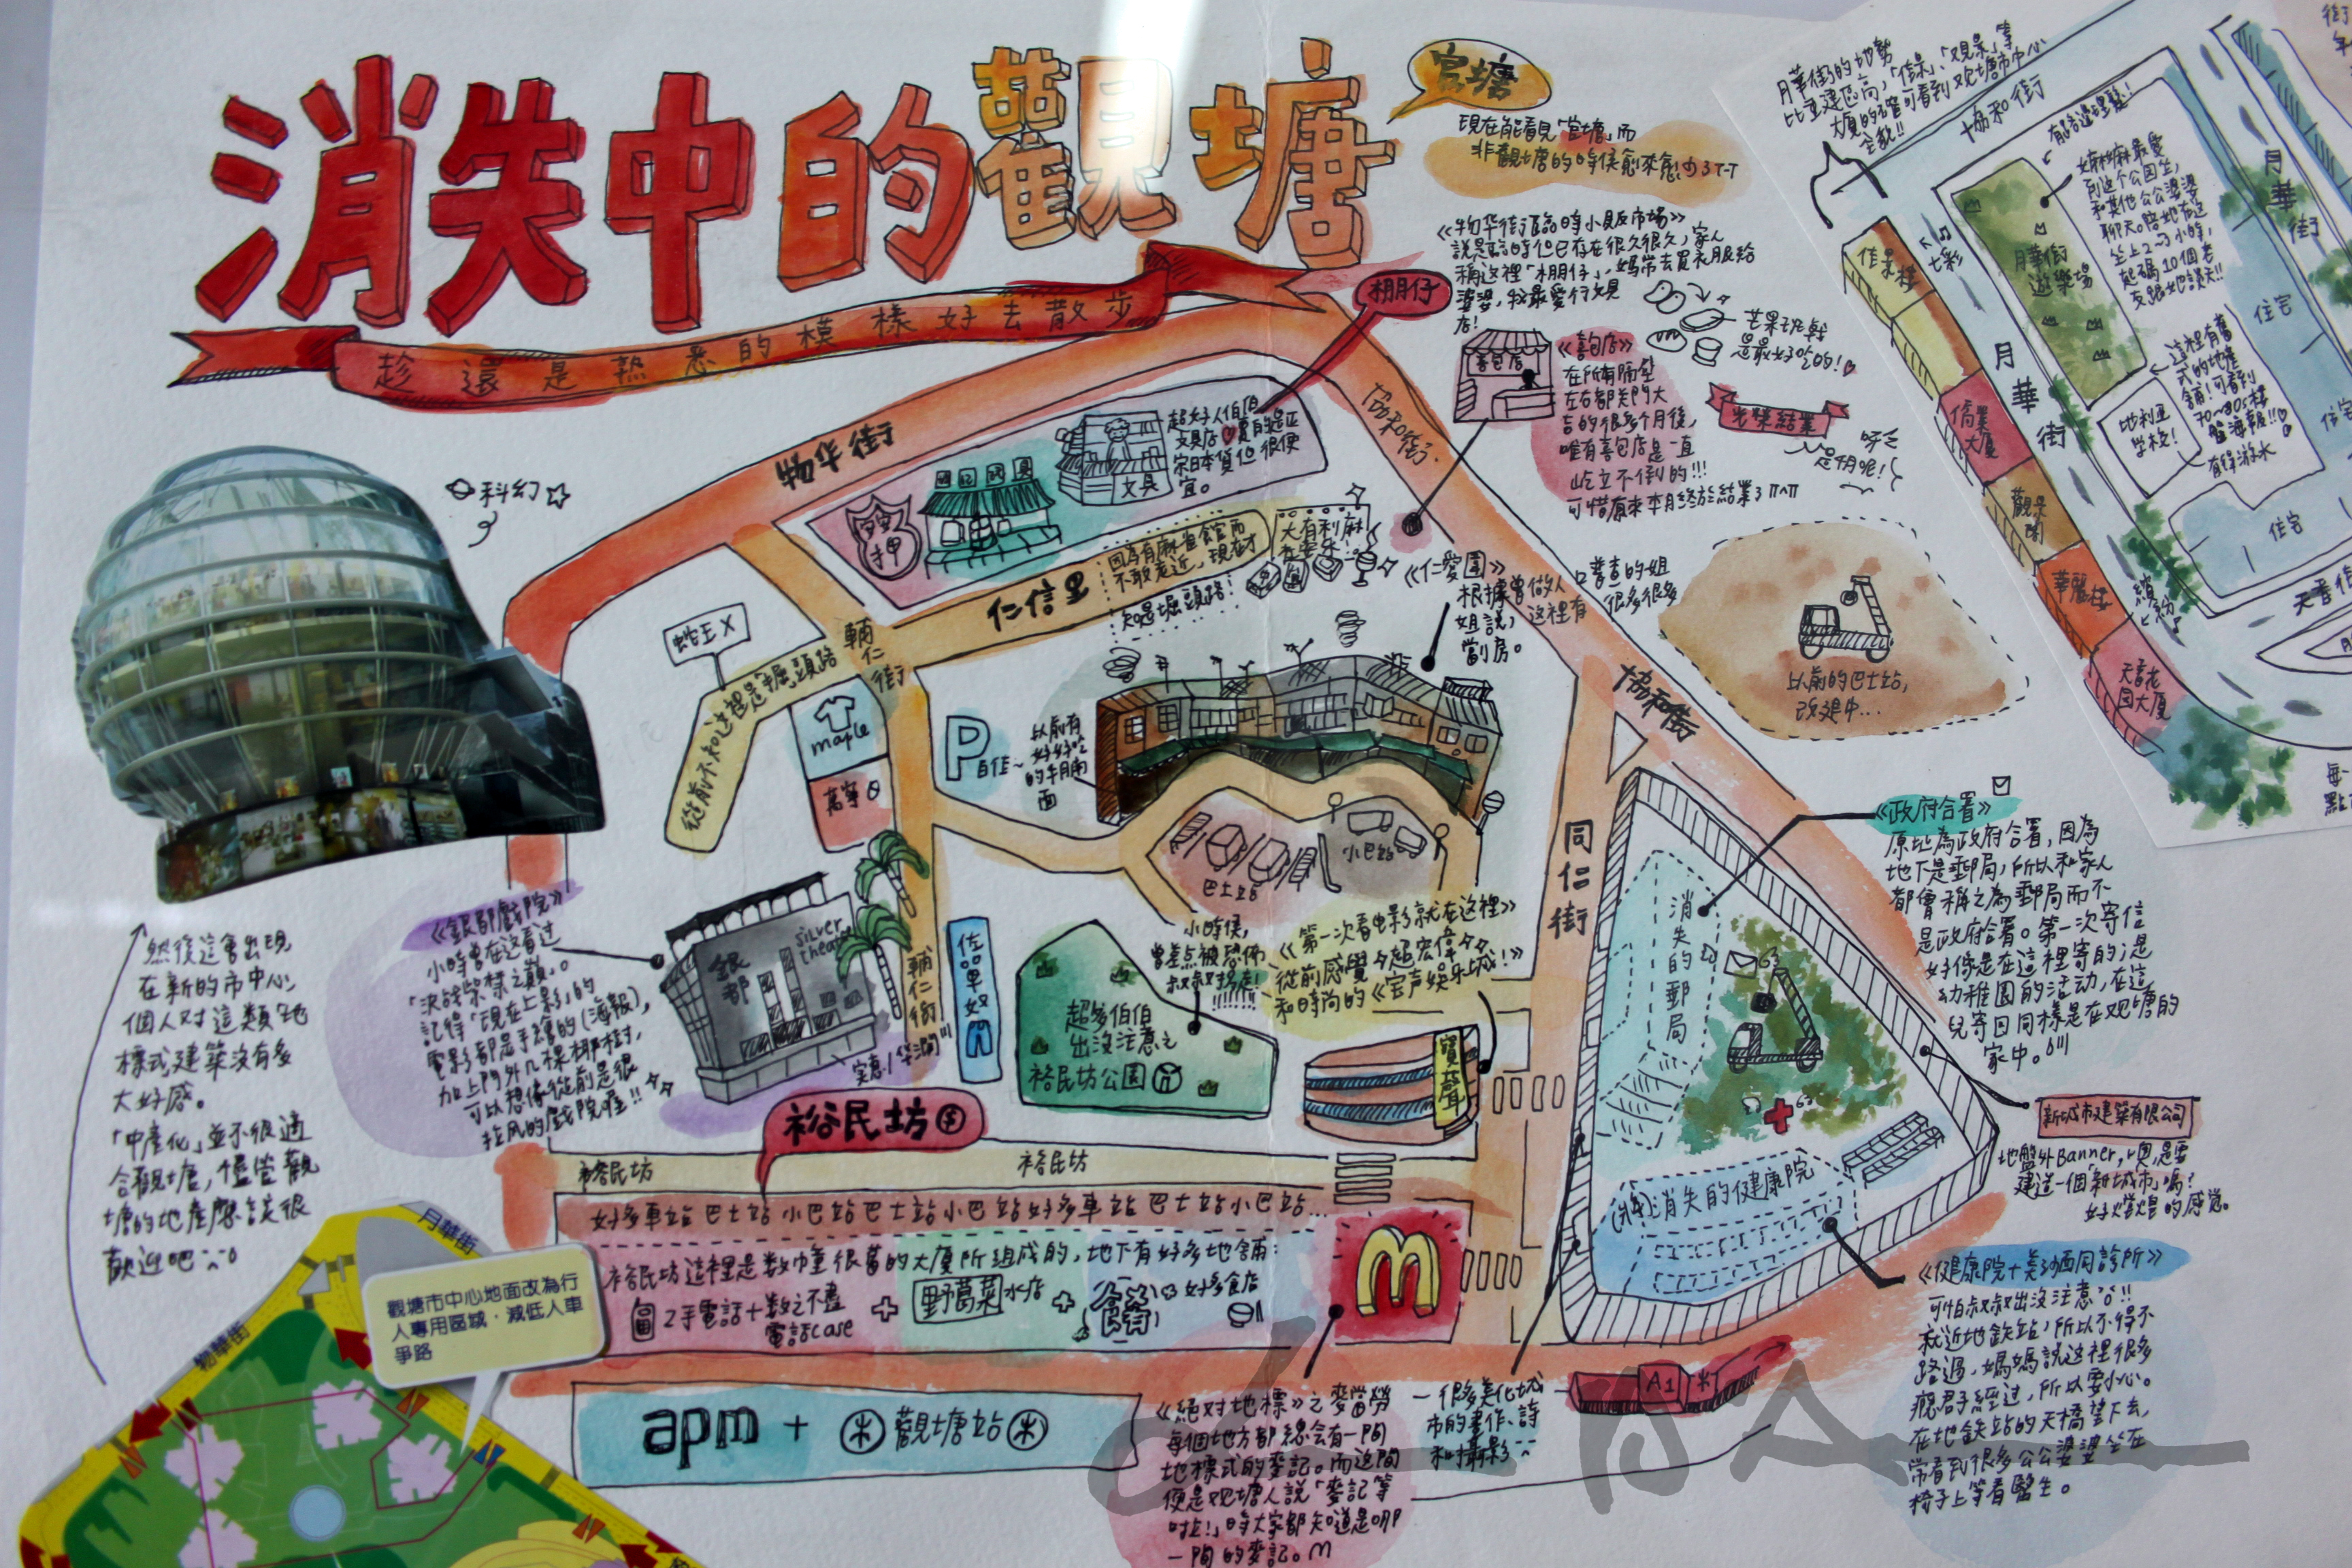 消失中的觀塘
趁還是熟悉的模樣好去散步
官塘
現在能看見「官塘」而
非觀塘的時侯愈來愈少了T-T
《物华街临時小販市场》
說是臨時但已存在很久很久,家人
稱這裡「棚仔」,媽常去買衣服給
婆婆,我最愛行文具
店!
棚仔
芒果班戟
是最好吃的!
喜包店
《喜包店》
在所有隔壁
左右都关門大
吉的很多个月後,
唯有喜包店是一直
屹立不倒的!!!
可惜原來本月終於結業了
光榮結業
科幻
物华街
協和街
超好人伯伯
文具店
文具
仁信里
因為有麻雀館而
不敢走近,現在才
知是堀頭路!
大有利麻
《仁愛圍》
根據曾做人口普查的姐
姐説,這裡有很多很多
劏房。
蛇王X
從前不知這裡是掘頭路
輔仁街
maple
萬寧
P
以前有
好好吃
的牛腩
面
巴士站
小巴站
以前的巴士站,
改建中...
協和街
同仁街
《銀都戲院》
小時曾在这看过
「決战紫禁之巔」。
記得「現在上影」的
電影都是手繪的(海報),
加上門外几棵椰树,
可以想像從前是很
拉风的戲院喔!!
銀都
silver
theatre
輔仁街
佐丹奴
小時候,
曾差点被恐怖
叔叔拐走!
超多伯伯
出沒注意之
裕民坊公園
《第一次看电影就在這裡》
從前感覺超宏偉
和時尚的《宝声娱乐城!》
寶聲
《政府合署》
原址為政府合署,因為
地下是郵局,所以和家人
都會稱之為郵局而不
是政府合署。第一次寄信
好像是在這裡寄的;是
幼稚園的活动,在這
兒寄回同樣是在观塘的
家中。
消失的郵局
消失的健康院
新城市建築有限公司
地盤外Banner,噢,是要
建造一個「新城市」嗎?
好灣灣的感覺。
《健康院+美沙酮同診所》
可怕叔叔出沒注意!!
就近地鉄站,所以不得不
路過,媽媽說这裡很多
癮君子經过,所以要小心。
在地鉄站的天橋望下去,
常看到很多公公婆婆坐在
椅子上等看醫生。
然後這會出現
在新的市中心,
個人对這類地
標式建築沒有多
大好感。
「中產化」並不很適
合觀塘,儘管觀
塘的地產應該很
歡迎吧
裕民坊
裕民坊
裕民坊
好多車站巴士站小巴站巴士站小巴站好多車站巴士站小巴站...
裕民坊這裡是数幢很舊的大廈所組成的,地下有好多地舖:
2手電話+数之不盡
電話case
+
野葛菜水店
+
好多食店
apm + 觀塘站
《絕对地標》之麥當勞
每個地方都總会有一間
地標式的麥記。而這間
便是观塘人説「麥記等
吖!」時大家都知道是哪
一間的麥記。
很多美化城
市的畫作、詩
和攝影
A1
觀塘市中心地面改為行
人專用區域,減低人車
爭路
月華街
物華街
月華街的地勢
比重建區高,「佳景」、「观景」等
大廈的確可看到观塘市中心
全貌!!
協和街
月華街
月華街
佳景樓
七彩
僑業大廈
觀景閣
華麗樓
天香花園大廈
繽紛
月華街遊樂場
嫲嫲最愛
到這个公园坐,
和其他公公婆婆
聊天。陪她在這
坐上2句小時,
起碼10個老
友跟她談天!!
這裡有舊
式的地產
舖!可看到
70~80s樓
盤海報!!!
地利亞
學校!
有得游水
住宅
住宅
天香街